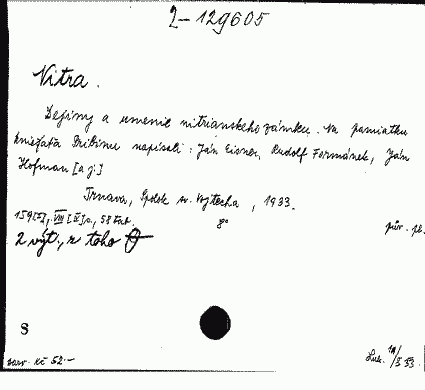 2-129605
Nitra.
Dejiny a umenie nitrianskeho zámku. Na pamiatku
kniežaťa Pribinu napísali: Ján Eisner, Rudolf Formánek, Ján
Hofman [a j.]
Trnava, Spolok sv. Vojtecha, 1933.
159[5], VIII [IV] s., 58 tab. 8°
pův. pl.
2 výt., z toho
S
Kč 52.-